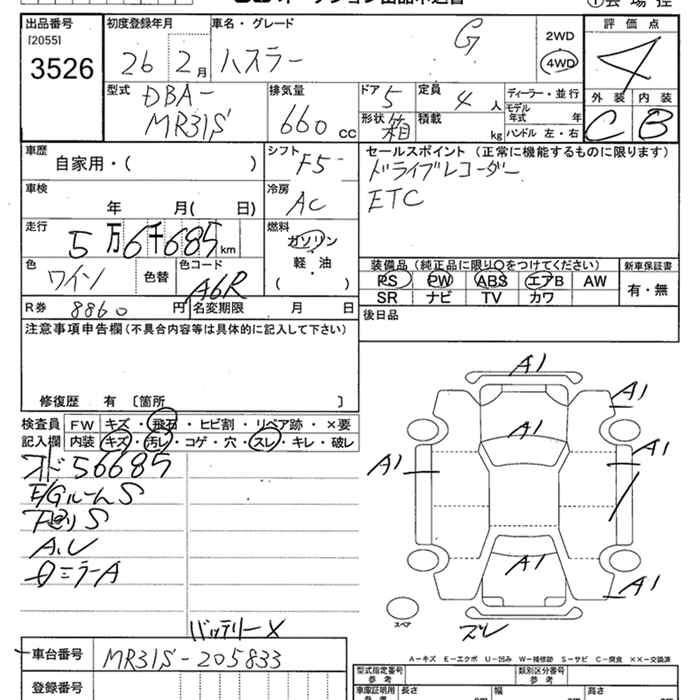 出品番号 初度登録年月 車名・グレード 評価点
[2055]
3526 26 2月 ハスラー G 2WD 4WD 4
型式 DBA- 排気量 ドア 5 定員 4人 ディーラー・並行 外装 内装
MR31S 660cc 形状 箱 積載 kg モデル年式 年 C B
ハンドル 左・右
車歴 シフト セールスポイント (正常に機能するものに限ります)
自家用・( ) F5 ドライブレコーダー
車検 冷房 ETC
年 月( 日) AC
走行 燃料
5万6千685km ガソリン
軽・油
( )
色 色替 色コード 装備品 (純正品に限り○をつけてください) 新車保証書
ワイン A6R PS PW ABS エアB AW 有・無
SR ナビ TV カワ
R券 8860円 名変期限 月 日 後日品
注意事項申告欄(不具合内容等は具体的に記入して下さい)
修復歴 有 〔箇所 〕
検査員 FW キズ・飛石・ヒビ割・リペア跡・×要
記入欄 内装 キズ・汚レ・コゲ・穴・スレ・キレ・破レ
オド56685
E/GルームS
下回りS
A.U
ミラーA
バッテリー×
A1
A1
A1
A1
A1
A1
A1
スペア
ズレ
A-キズ E-エクボ U-凹み W-補修跡 S-サビ C-腐食 ××-交換済
車台番号 MR31S-205833
型式指定番号 類別区分番号
参考 参考
登録番号 車庫証明用 長さ 幅 高さ